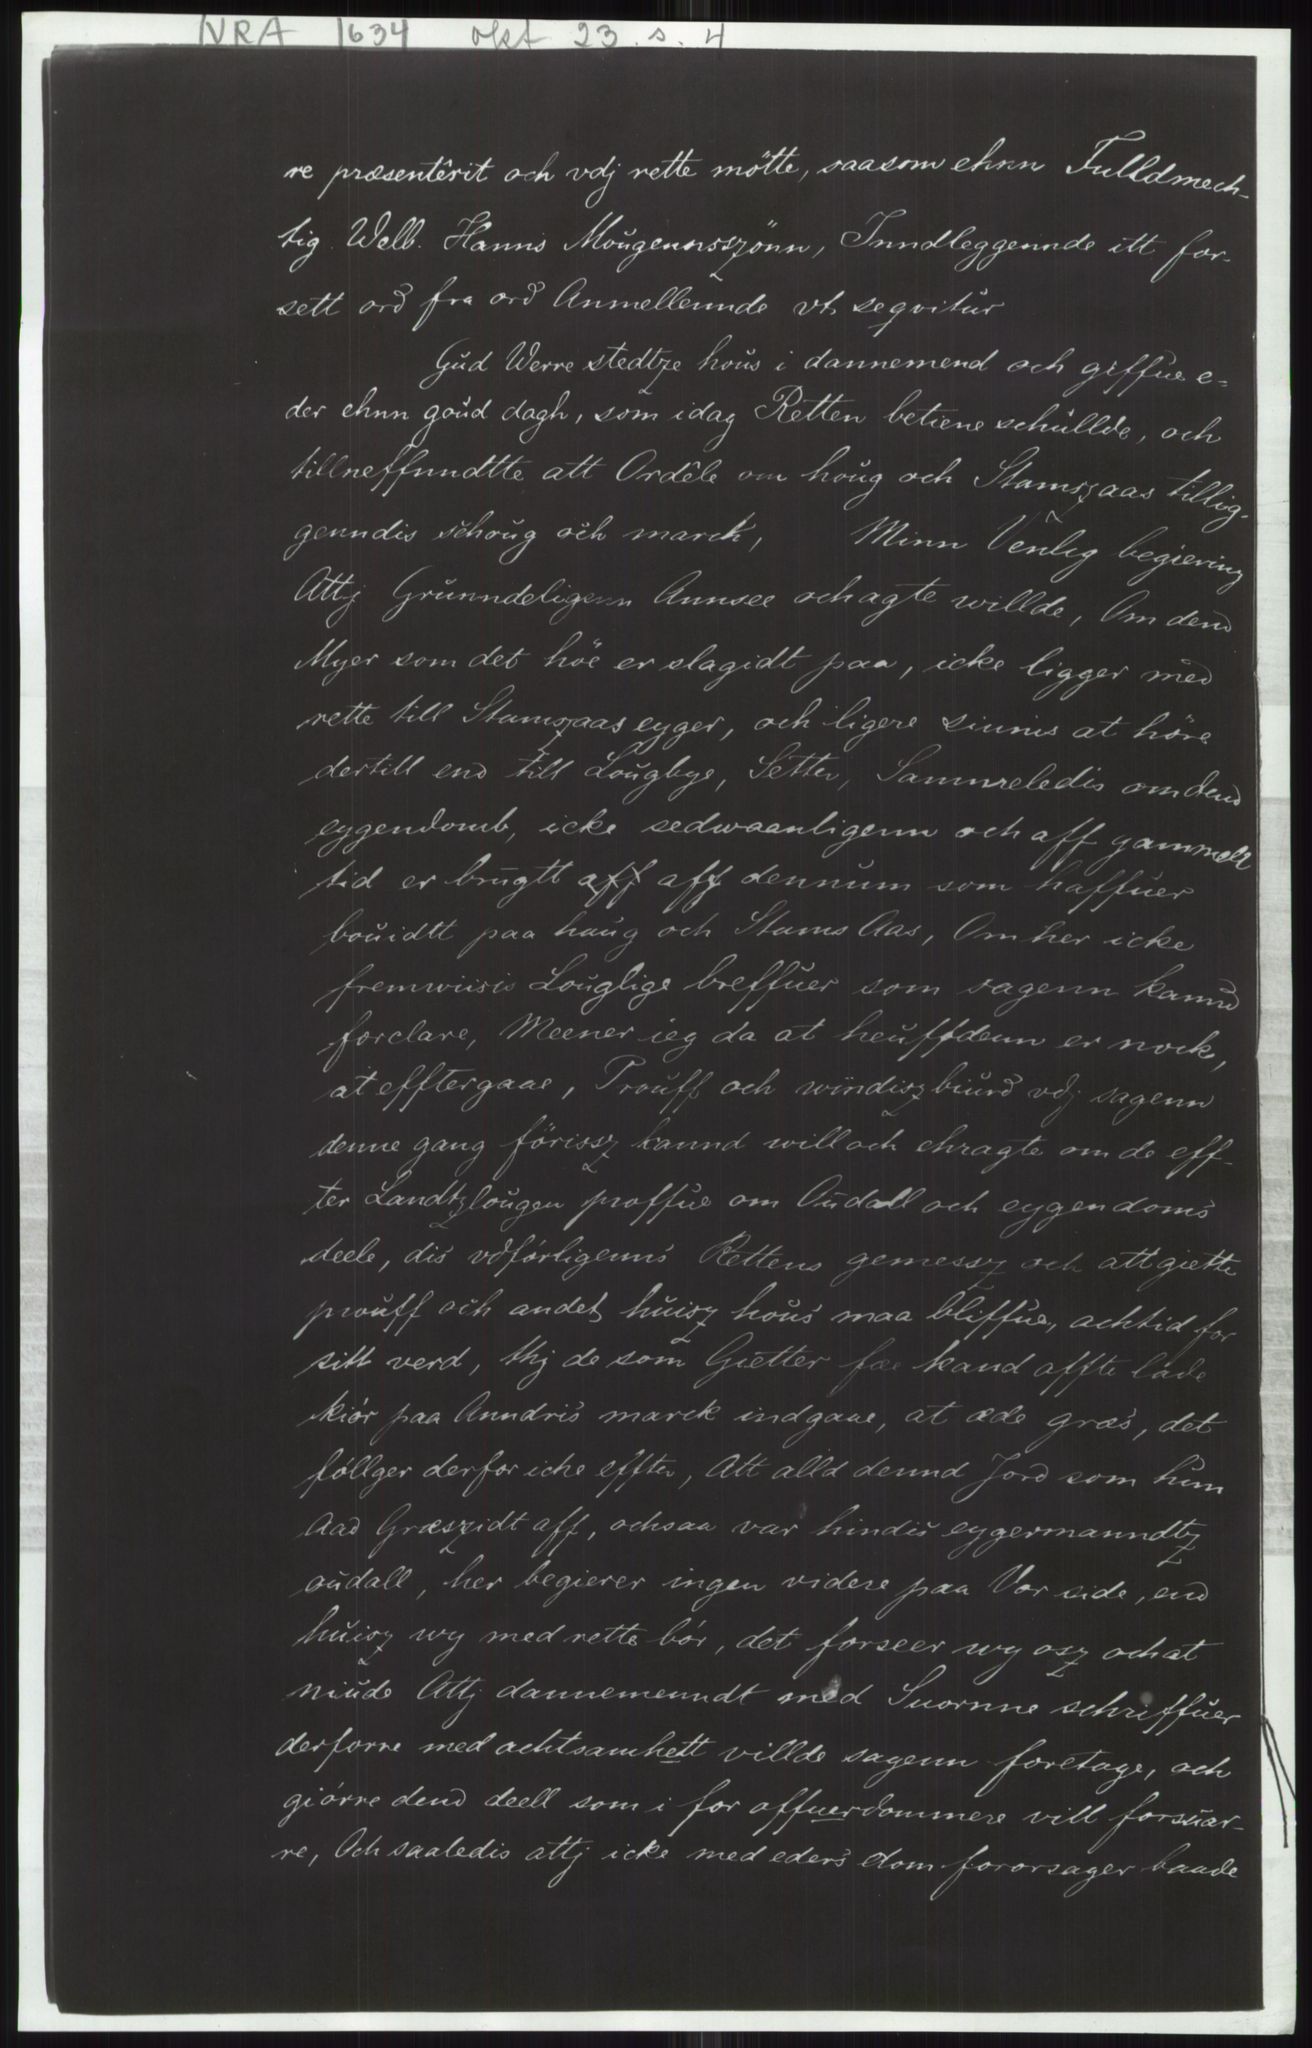 NRA 1634 okt 23. s. 4
re præsentêrit och vdj rette mötte, saasom ehnn Fulldmech-
tig Welb. Hanns Mougennsszönn, Inndleggennde itt for-
sett ord fra ord Anmellennde vt seqvitur
Gud Werre stedtze hous i dannemend och giffue e-
der ehnn goud dagh, som idag Retten betiene schullde, och
tillneffnndtte att Ordêle om houg och Stamszaas tillig-
genndis schoug och marck, Minn Venlig begiering
Attj Grunndeligenn Annsee och agte willde, Om dend
Myer som det höe er slagidt paa, icke ligger med
rette till Stamszaas eyger, och ligere siunis at höre
dertill end till Lougbye, Setter, Sammeledis om dend
eygendomb, icke sedwaanligenn och aff gammell
tid er brugtt aff aff dennum som haffuer
bouidtt paa haug och Stams Aas, Om her icke
fremwiisis Louglige breffuer som sagenn kannd
forclare, Meener ieg da at heuffdenn er nock,
at efftergaae, Prouff och windisz biurd vdj sagenn
denne gang förissz kannd will och ehragte om de eff-
ter Landtzlougen proffue om Oudall och eygendoms
deele, dis vdförligenns Rettens gemessz och att giette
prouff och andet huisz hous maa bliffue, achtid for
sitt verd, thj de som Gietter fæe kand affte lade
kiör paa Anndris marck indgaae, at æde græs, det
föllger derfor icke effter, Att alld dennd Jord som hun
Aad Græszidt aff, ochsaa var hindis eygermanndtz
oudall, her begierer ingen videre paa Vor side, end
huisz wy med rette bör, det forseer wy osz och at
niude Attj dannemenndt med Suornne schriffuer
derforre med achtsamhett villde sagenn foretage, och
giörre dend deell som i for offuerdommere vill forsuar-
re, Och saaledis attj icke med eders dom fororsager baade